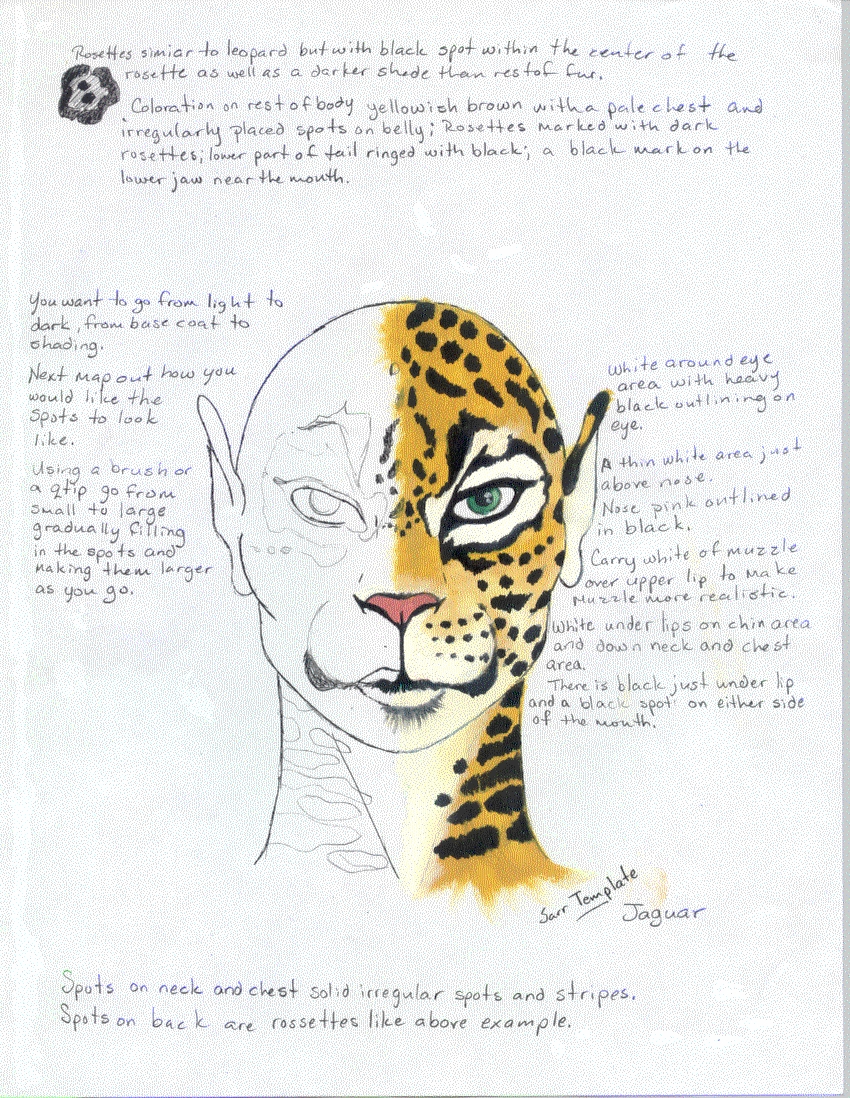 Rosettes simiar to leopard but with black spot within the center of the
rosette as well as a darker shade than rest of fur.
Coloration on rest of body yellowish brown with a pale chest and
irregularly placed spots on belly; Rosettes marked with dark
rosettes; lower part of tail ringed with black; a black mark on the
lower jaw near the mouth.
You want to go from light to
dark, from base coat to
shading.
Next map out how you
would like the
spots to look
like.
Using a brush or
a qtip go from
small to large
gradually filling
in the spots and
making them larger
as you go.
White around eye
area with heavy
black outlining on
eye.
A thin white area just
above nose.
Nose pink outlined
in black.
Carry white of muzzle
over upper lip to make
muzzle more realistic.
White under lips on chin area
and down neck and chest
area.
There is black just under lip
and a black spot on either side
of the mouth.
Sarr Template
Jaguar
Spots on neck and chest solid irregular spots and stripes.
Spots on back are rossettes like above example.